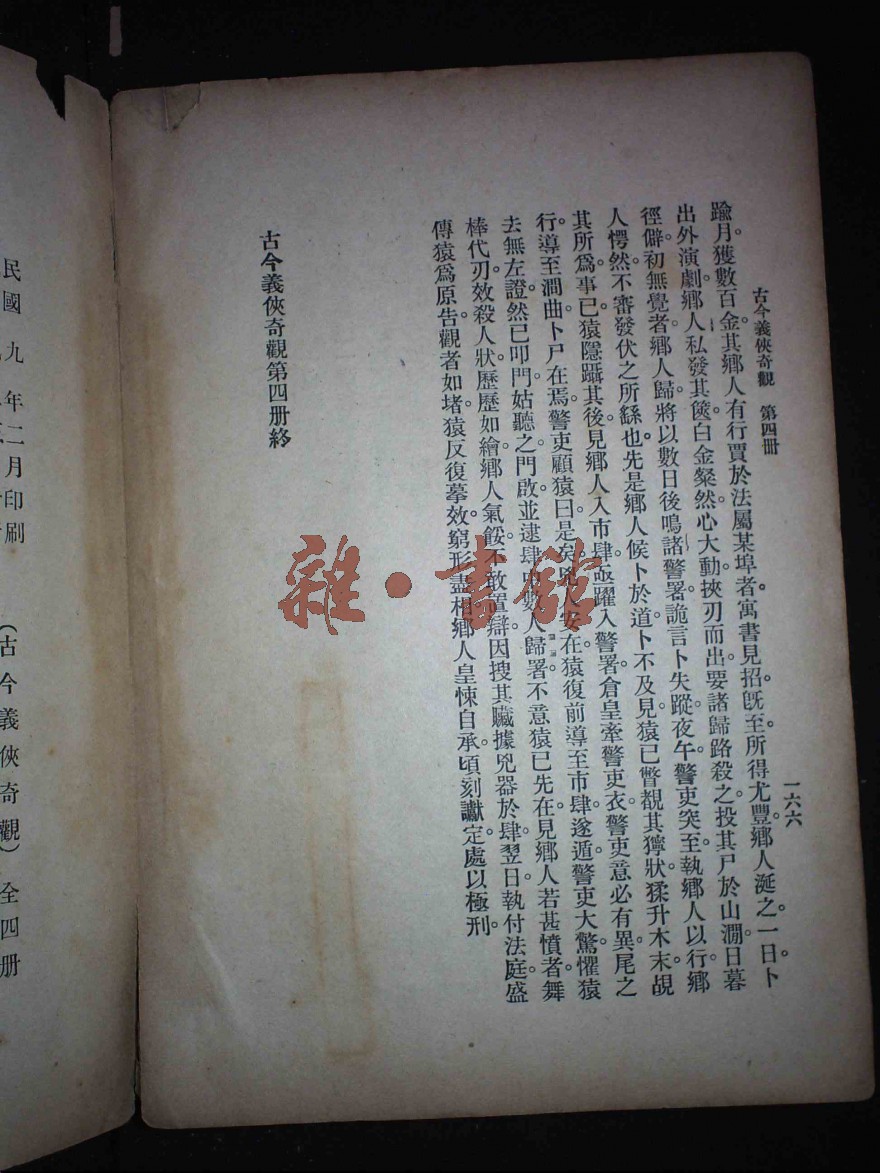 古今義俠奇觀 第四冊
一六六
踰月獲數百金其鄉人有行賈於法屬某埠者寓書見招既至所得尤豐鄉人涎之一日卜
出外演劇鄉人私發其篋白金粲然心大動挾刃而出要諸歸路殺之投其尸於山澗日暮
徑僻初無覺者鄉人歸將以數日後鳴諸警署詭言卜失蹤夜午警吏突至執鄉人以行鄉
人愕然不審發伏之所繇也先是鄉人候卜於道卜不及見猿已瞥覩其獰狀猱升木末覘
其所爲事已猿隱躡其後見鄉人入市肆亟躍入警署倉皇牽警吏衣警吏意必有異尾之
行導至澗曲卜尸在焉警吏顧猿曰是矣兇人安在猿復前導至市肆遂遁警吏大驚懼猿
去無左證然已叩門姑聽之門啟並逮肆中數人歸署不意猿已先在見鄉人若甚憤者舞
棒代刃效殺人狀歷歷如繪鄉人氣餒不敢置辯因搜其贓據兇器於肆翌日執付法庭盛
傳猿爲原告觀者如堵猿反復摹效窮形盡相鄉人皇悚自承頃刻讞定處以極刑
古今義俠奇觀第四册終
民國九年二月印刷
(古今義俠奇觀)全四册
雜·書館